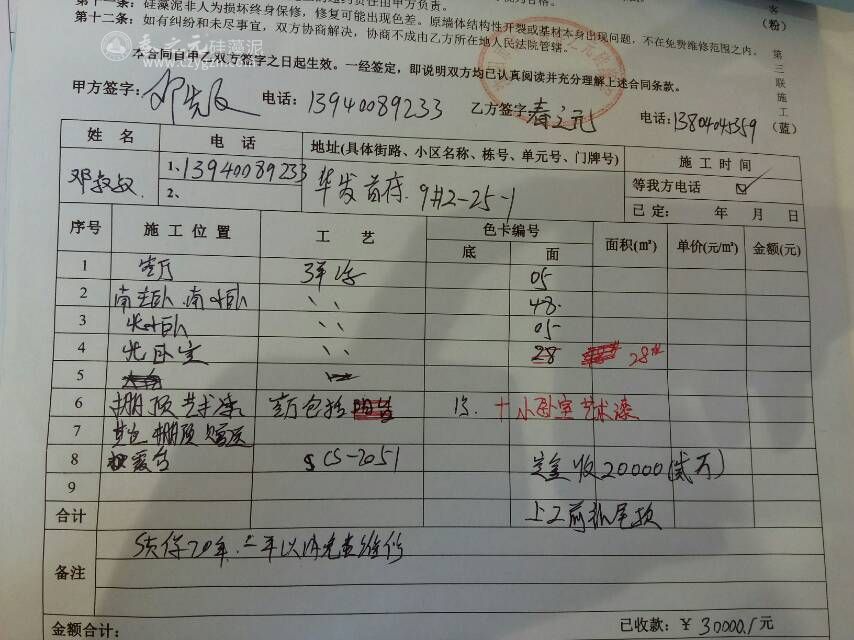 第十一条：硅藻泥非人为损坏终身保修，修复可能出现色差。原墙体结构性开裂或基材本身出现问题，不在免费维修范围之内。
第十二条：如有纠纷和未尽事宜，双方协商解决，协商不成由乙方所在地人民法院管辖。
春之元硅藻泥
www.czygzn.com
本合同自甲乙双方签字之日起生效。一经签定，即说明双方均已认真阅读并充分理解上述合同条款。
客
（粉）
第三联施工（蓝）
甲方签字： 电话：13940089233 乙方签字 春之元 电话：13804045359
姓名 电话 地址(具体街路、小区名称、栋号、单元号、门牌号) 施工时间
邓叔叔 1、13940089233 华发首府 9#2-25-1 等我方电话 ☑
2、 已定： 年 月 日
序号 施工位置 工艺 色卡编号 面积(m²) 单价(元/m²) 金额(元)
底 面
1 客厅 05
2 南主卧 南小卧 、、 48
3 北小卧 、、 05
4 北卧室 、、 28 28#
5
6 棚顶艺术漆 客厅包括 +小卧室艺术漆
7 其它棚顶
8 CS-2051 定金收20000(贰万)
9
合计 上工前 尾款
备注 质保20年.二年以内免费维修
金额合计： 已收款：¥ 30000.1元